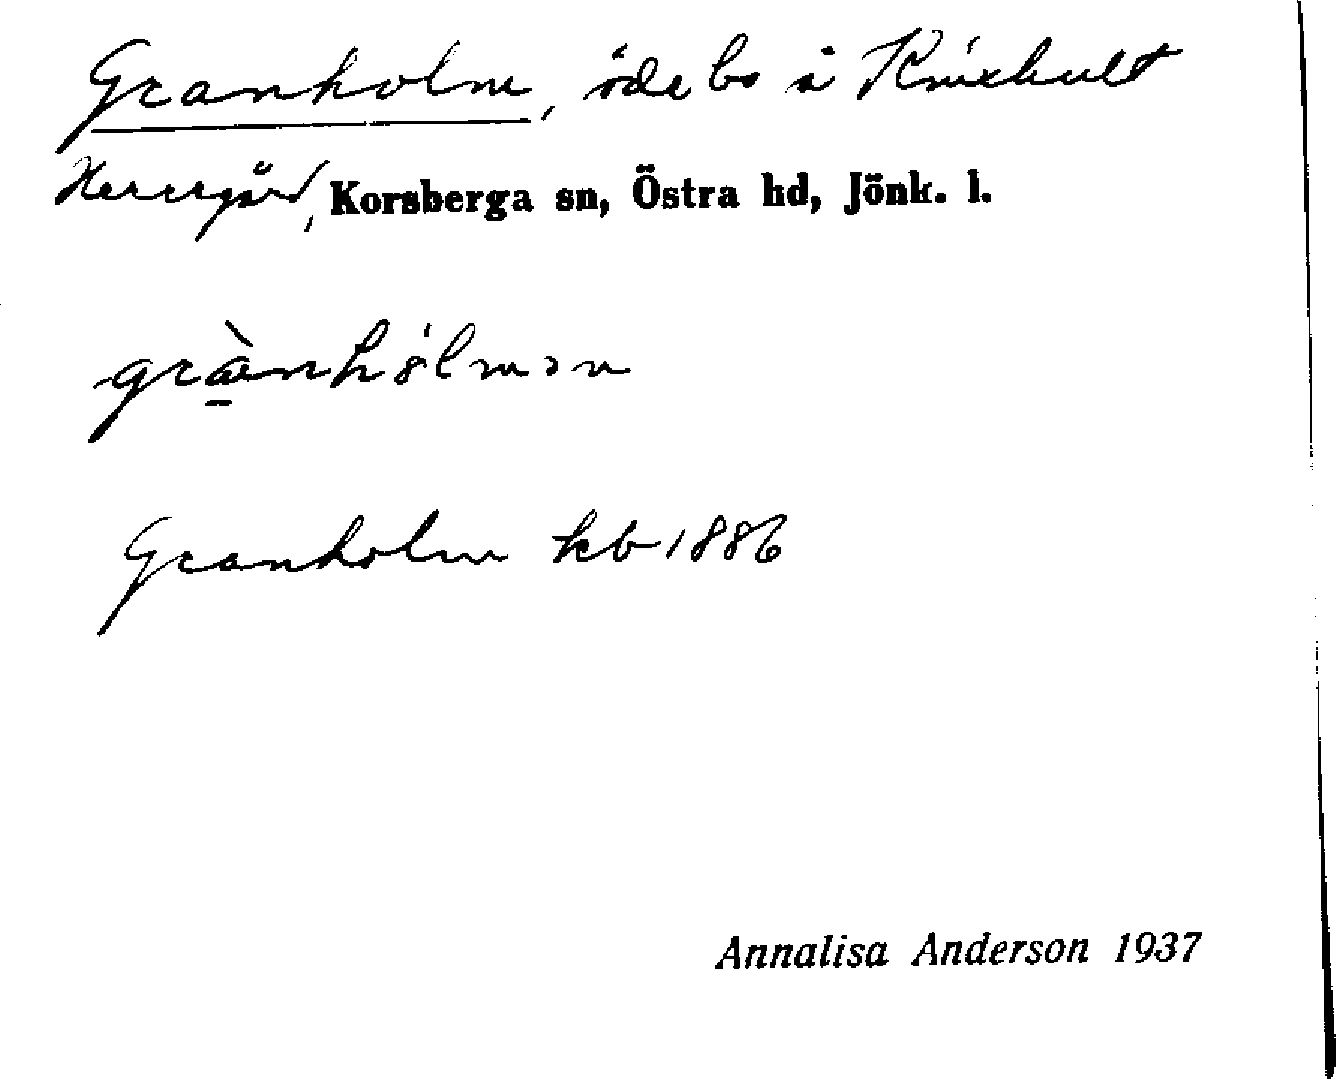 Granholm, ödebo å Knixhult
Herrgård, Korsberga sn, Östra hd, Jönk. l.
Granholm kb 1886
Annalisa Anderson 1937